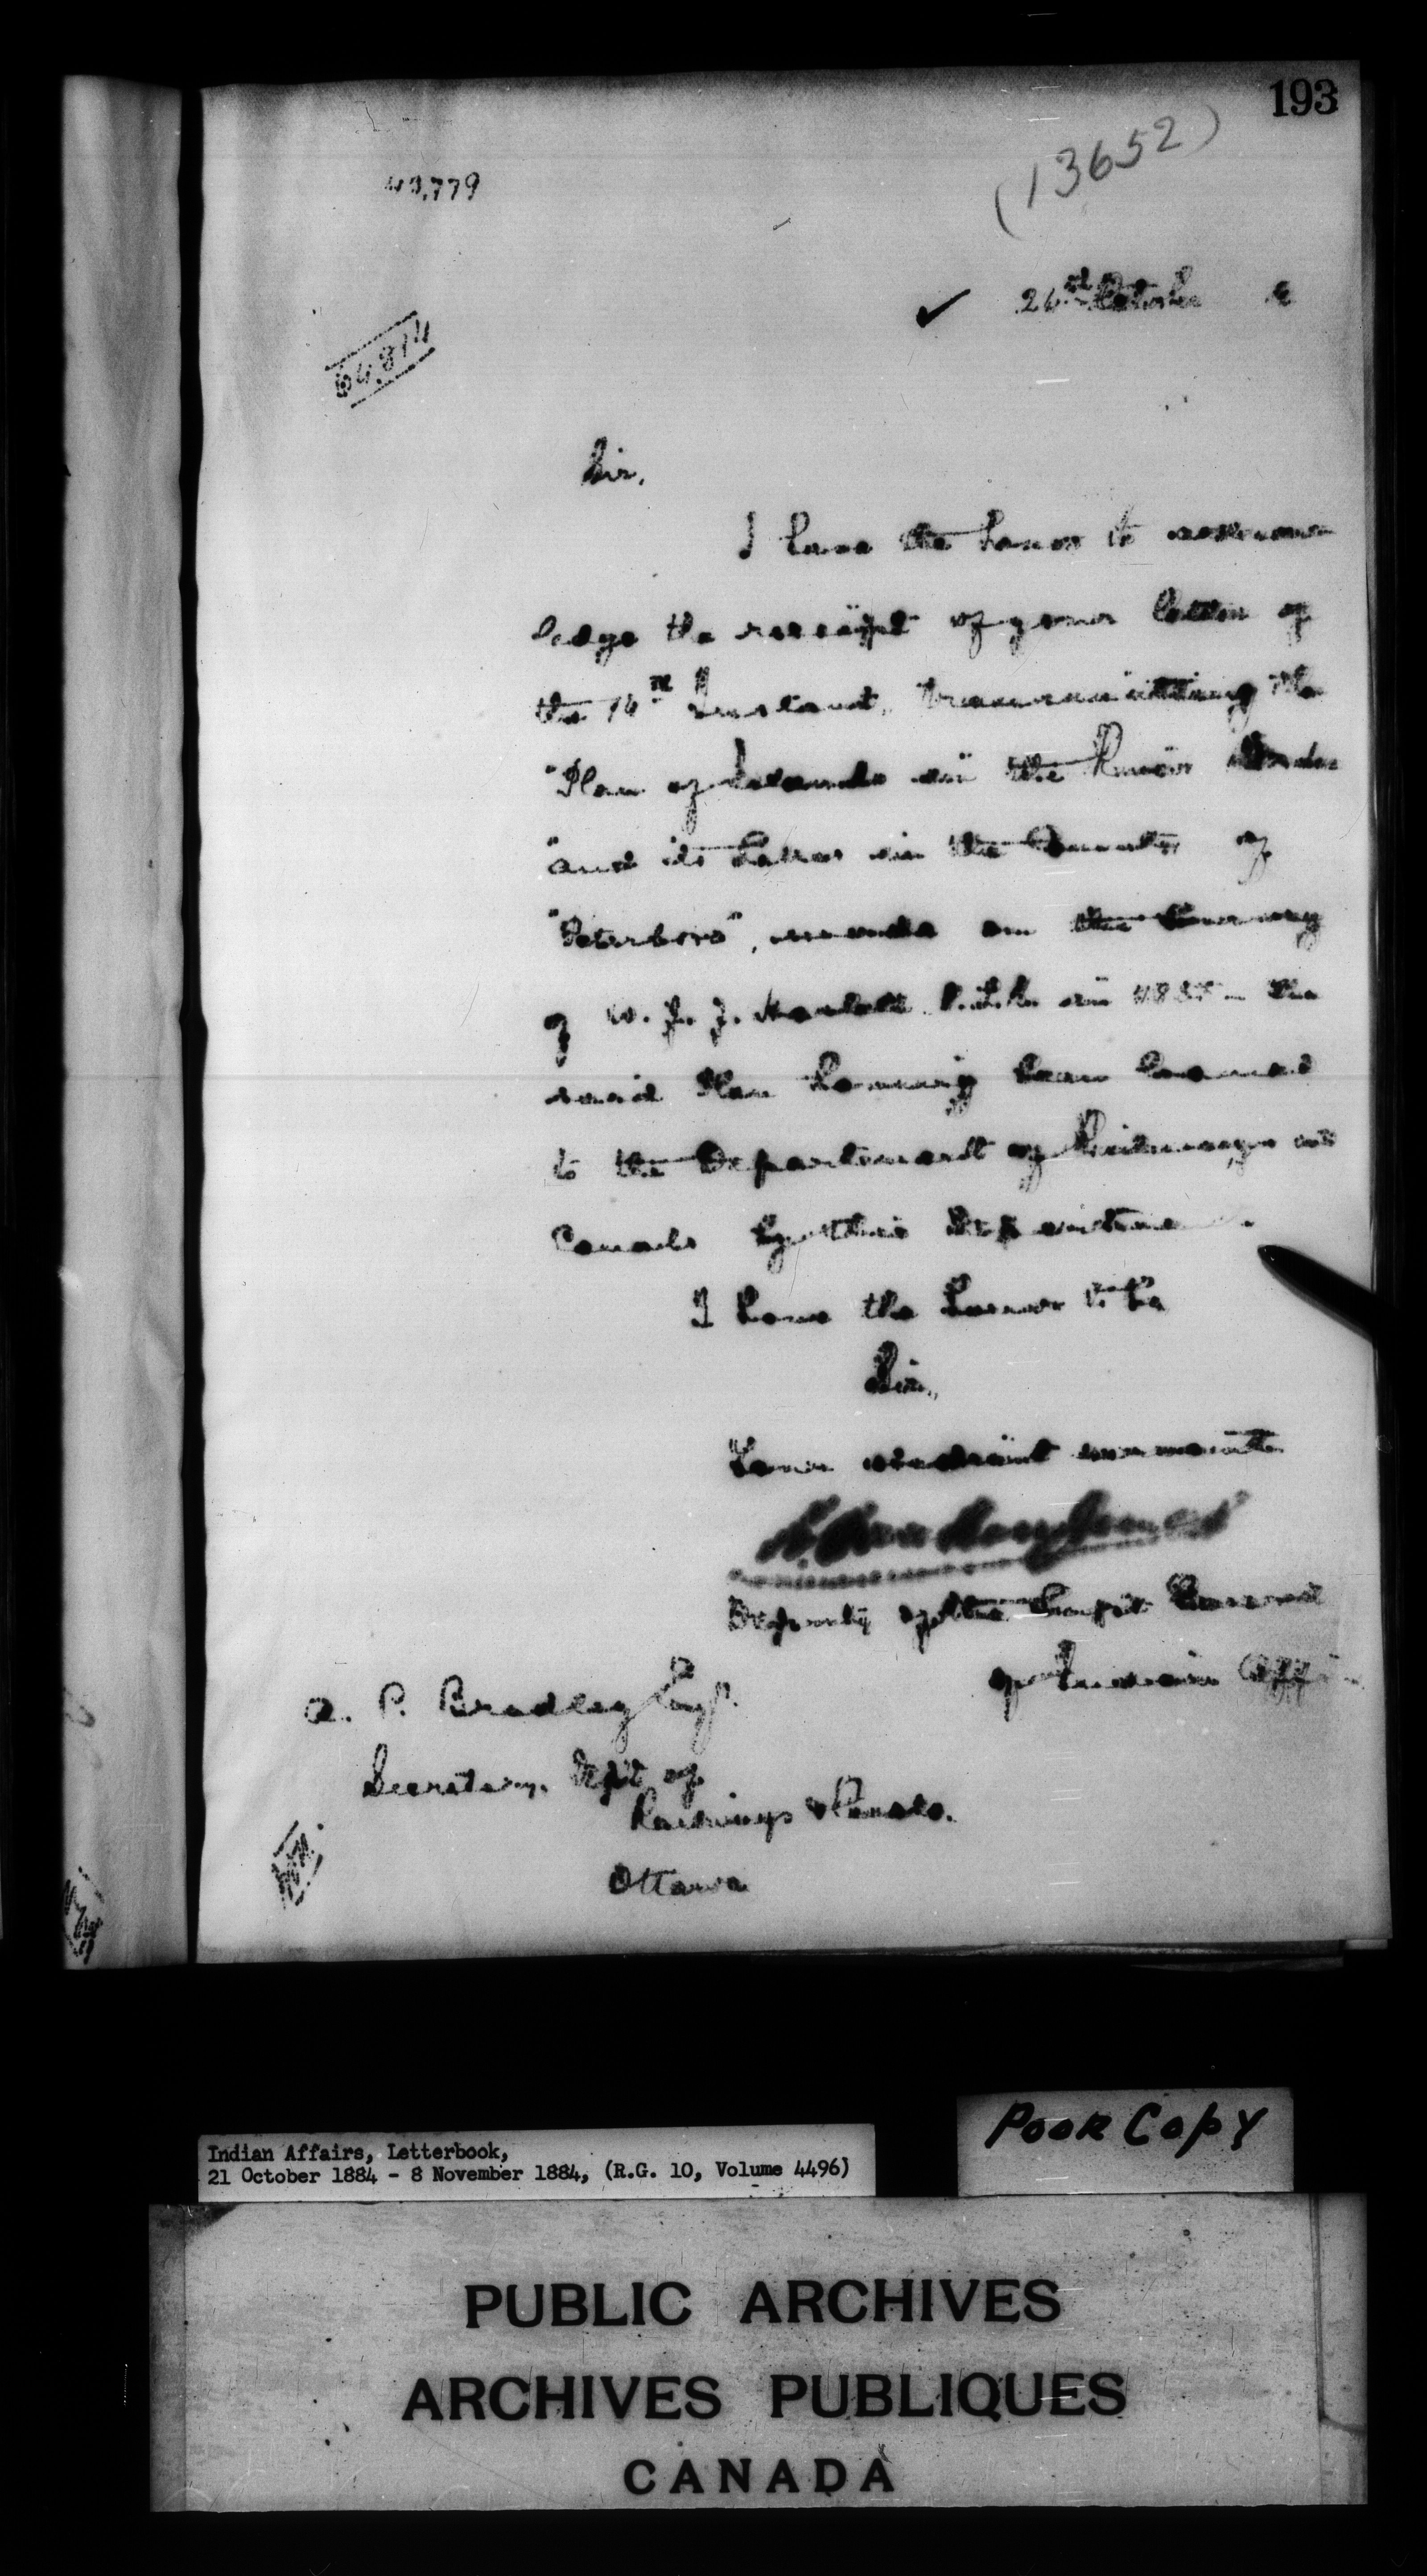 193
(13652)
26 October
Sir,
I have the honor to acknow
ledge the receipt of your letter of
the 16th Instant, transmitting the
"Plan of Islands in the River
"and its Lakes in the County of
"Peterboro", made on the Survey
of W. J. J. in 1855 the
said Plan having been loaned
to the Department of Railways and
Canals by this Department.
I have the honor to be
Sir,
Your obedient servant
L. VanKoughnet
Deputy of the Supt General
of Indian Aff
A. P. Bradley Esqr.
Secretary, Dept of
Railways & Canals.
Ottawa
POOR COPY
Indian Affairs, Letterbook,
21 October 1884 - 8 November 1884, (R.G. 10, Volume 4496)
PUBLIC ARCHIVES
ARCHIVES PUBLIQUES
CANADA